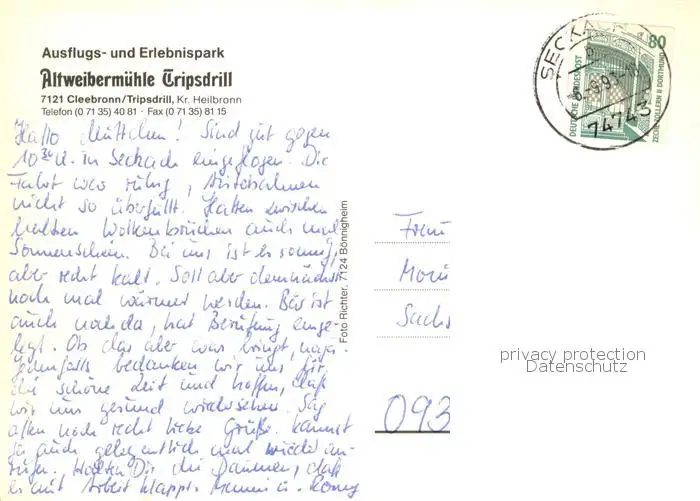 Ausflugs- und Erlebnispark
Altweibermühle Tripsdrill
7121 Cleebronn/Tripsdrill, Kr. Heilbronn
Telefon (0 71 35) 40 81 · Fax (0 71 35) 81 15
Hallo Muttchen! Sind gut gegen
10 30 U. in Seckach eingeflogen. Die
Fahrt war ruhig, Autobahnen
nicht so überfüllt. Hatten zwischen
Wolkenbrüchen auch mal
Sonnenschein. Bei uns ist es sonnig,
aber recht kalt. Soll aber demnächst
noch mal wärmer werden. Bär ist
auch noch da, hat Berufung einge-
legt. Ob das aber was bringt, naja.
Jedenfalls bedanken wir uns für
die schöne Zeit und hoffen, daß
wir uns gesund wiedersehen. Sag
allen noch recht liebe Grüße. Kannst
ja auch gelegentlich mal wieder an-
rufen. Halten Dir die Daumen, daß
es mit Arbeit klappt. Mutti u. Romy
Foto Richter, 7124 Bönnigheim
SECKACH
-6.-9.93-16
74743
80
DEUTSCHE BUNDESPOST
ZECHE ZOLLERN II DORTMUND
Frau
Moni
Sachs
093
privacy protection
Datenschutz